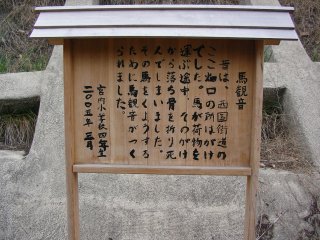 馬観音
昔は、西国街道の
ここ畑口の所はがけ
でした。馬が荷物を
運ぶ途中、そのがけ
から落ち骨を折り死
んでしまいました。
その馬をくようする
ために馬観音がつく
られました。
宮内小学校四年生
二〇〇五年 三月